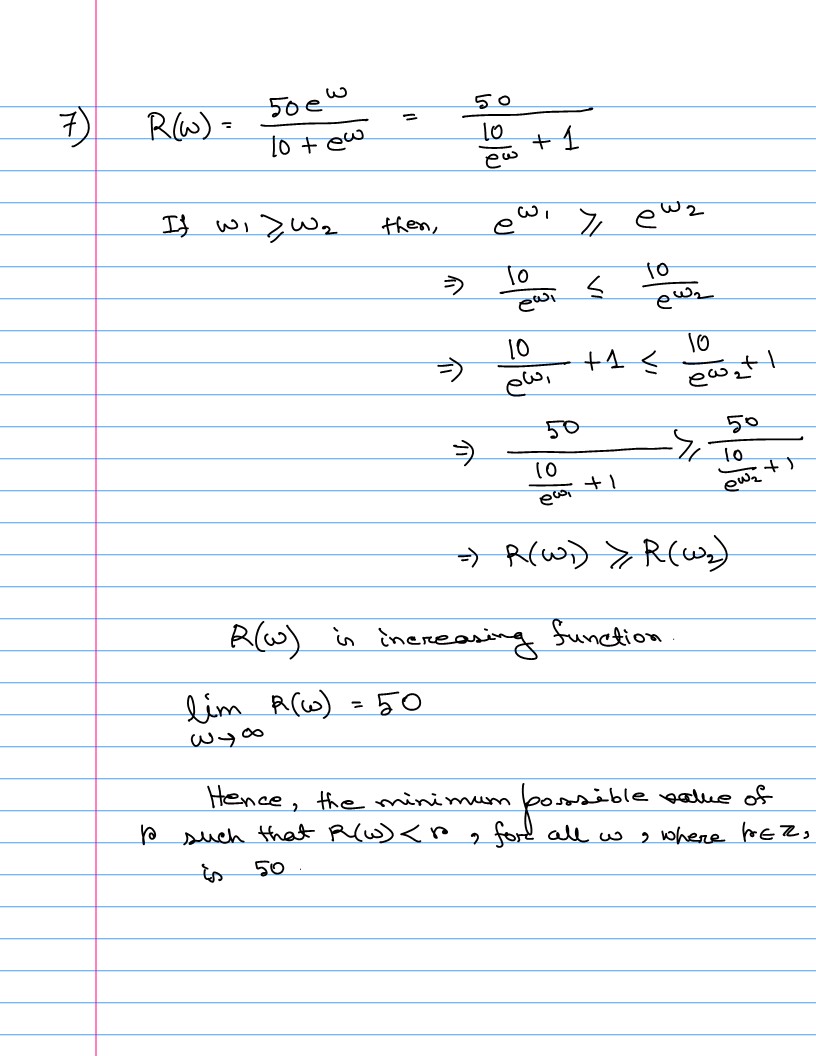 7) R(ω) = 50e^ω / (10 + e^ω) = 50 / (10/e^ω + 1)
If ω₁ ⩾ ω₂ then, e^ω₁ ⩾ e^ω₂
⇒ 10/e^ω₁ ≤ 10/e^ω₂
⇒ 10/e^ω₁ + 1 ≤ 10/e^ω₂ + 1
⇒ 50 / (10/e^ω₁ + 1) ⩾ 50 / (10/e^ω₂ + 1)
⇒ R(ω₁) ⩾ R(ω₂)
R(ω) is increasing function.
lim ω→∞ R(ω) = 50
Hence, the minimum possible value of
p such that R(ω) < p, for all ω, where p∈ℤ,
is 50.